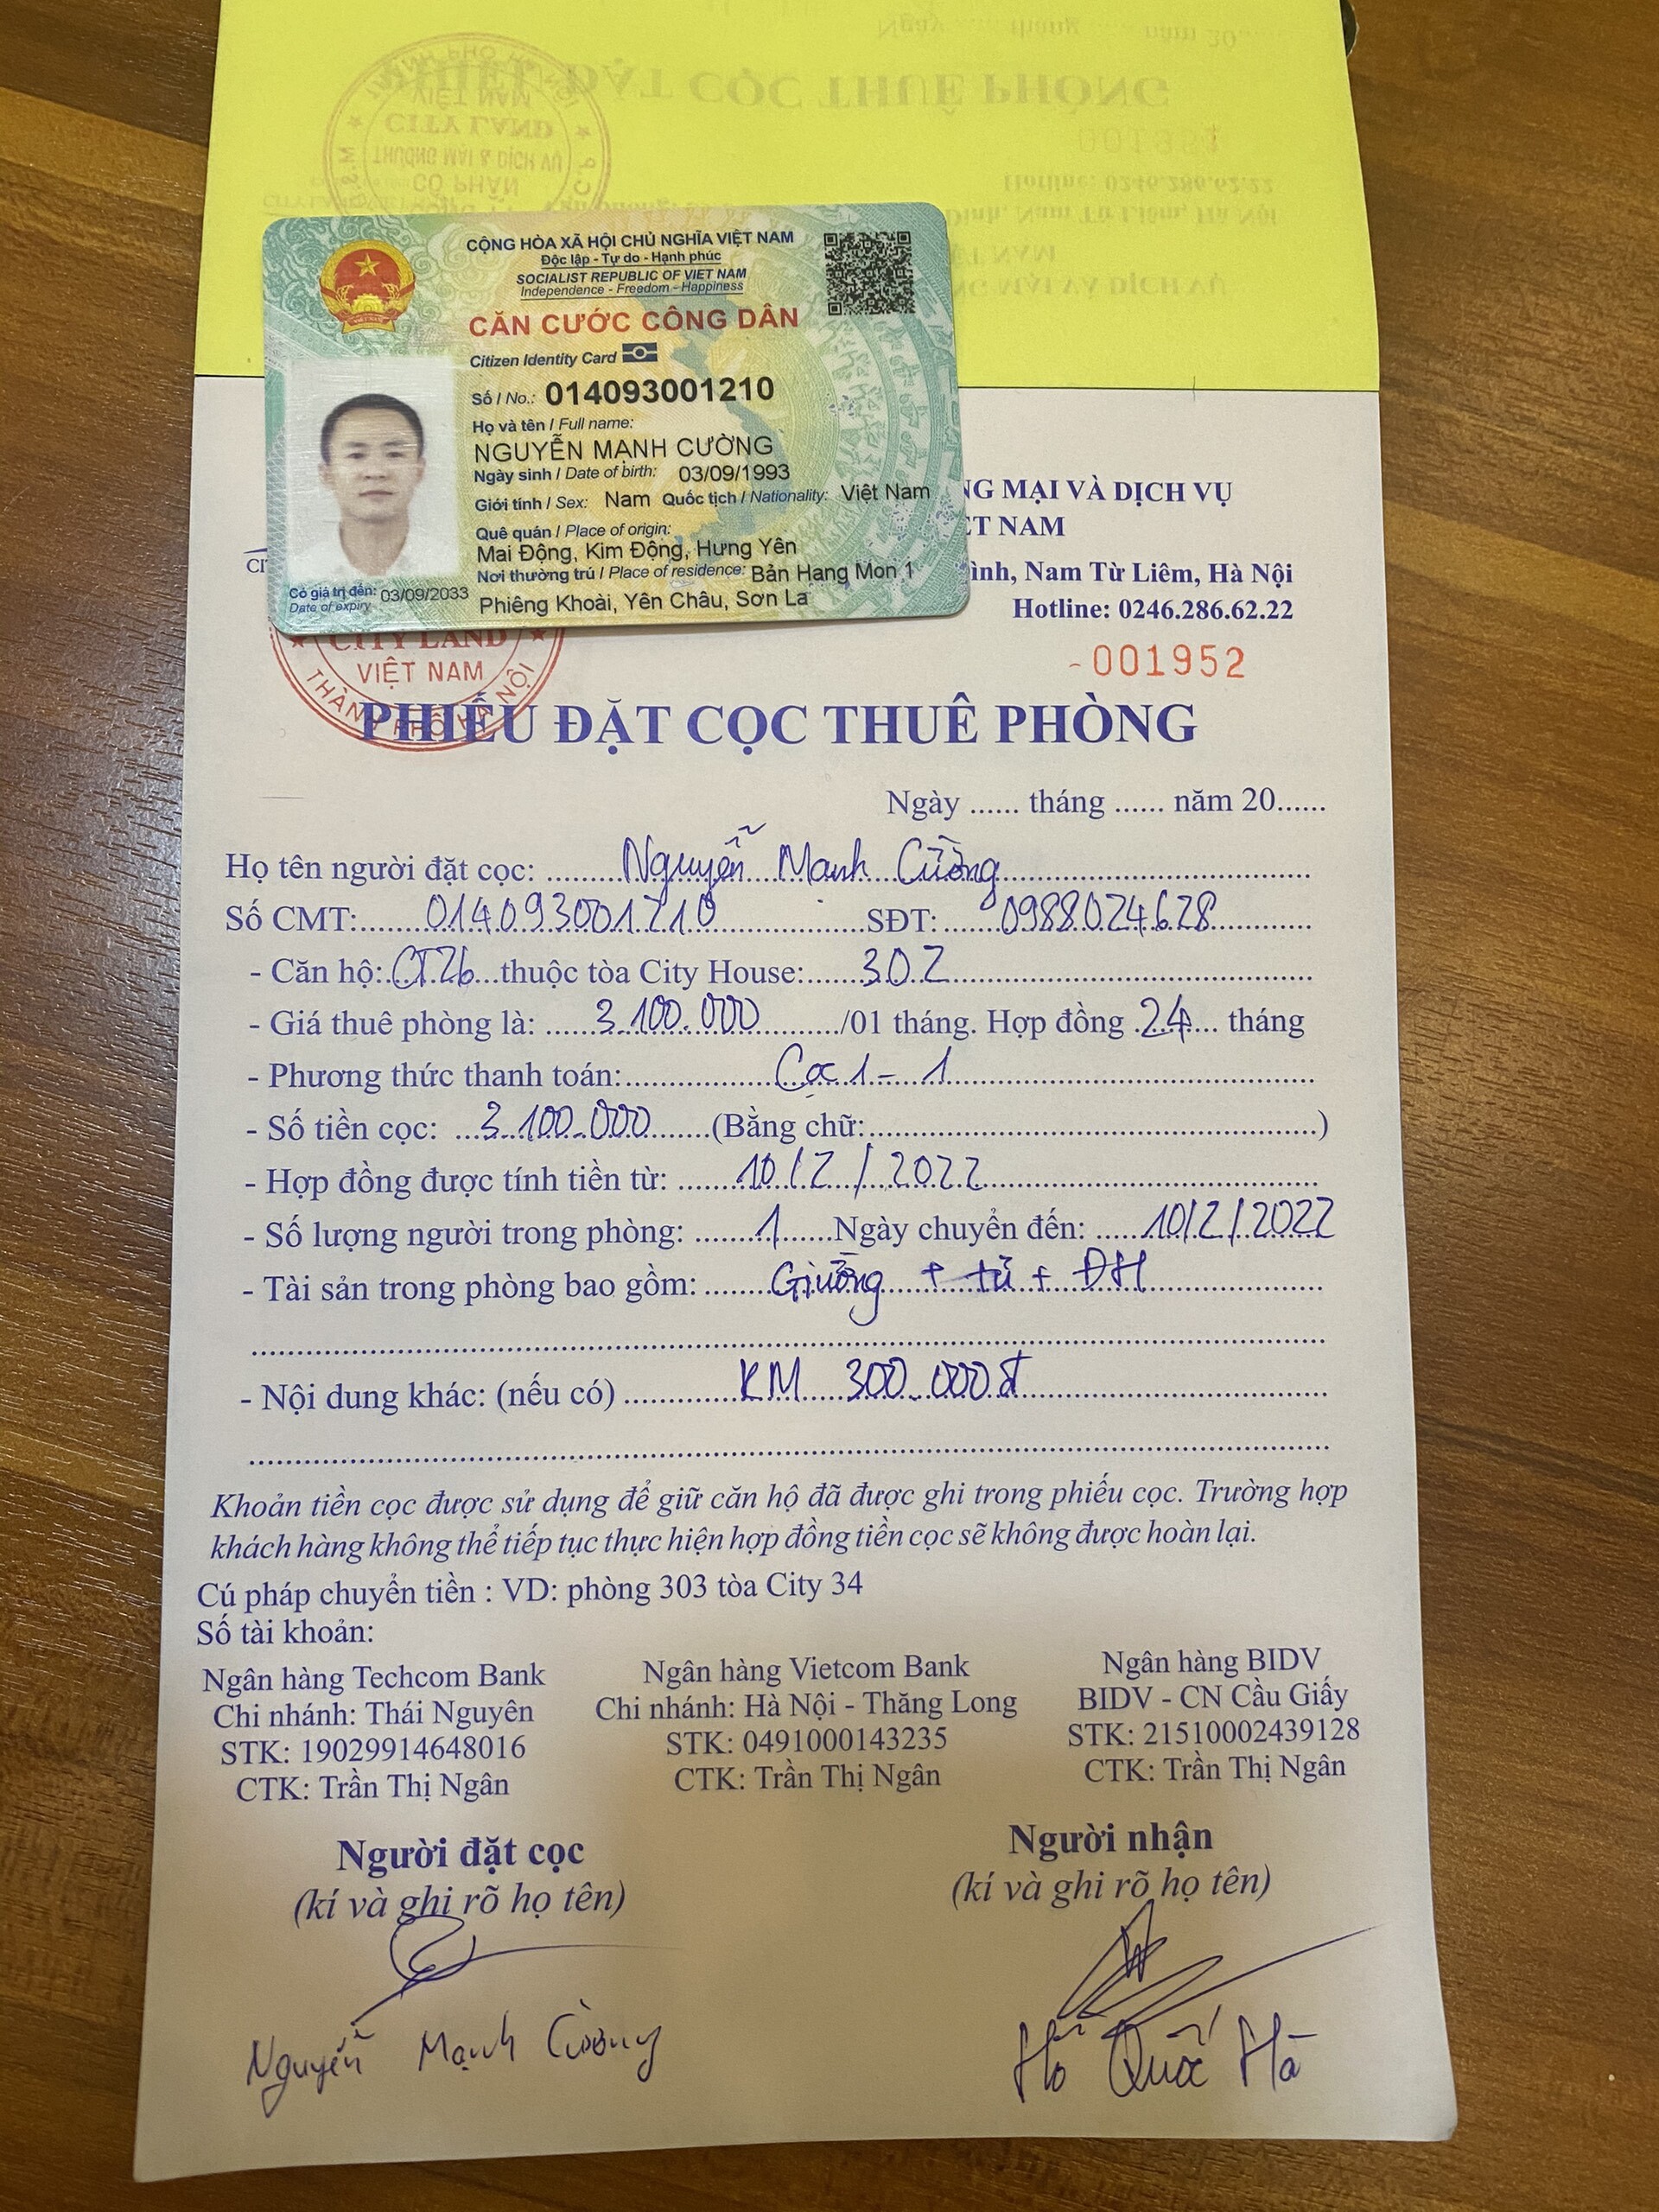 CỘNG HÒA XÃ HỘI CHỦ NGHĨA VIỆT NAM
Độc lập - Tự do - Hạnh phúc
SOCIALIST REPUBLIC OF VIET NAM
Independence - Freedom - Happiness
CĂN CƯỚC CÔNG DÂN
Citizen Identity Card
Số / No.: 014093001210
Họ và tên / Full name:
NGUYỄN MẠNH CƯỜNG
Ngày sinh / Date of birth: 03/09/1993
Giới tính / Sex: Nam Quốc tịch / Nationality: Việt Nam
Quê quán / Place of origin:
Mai Động, Kim Động, Hưng Yên
Nơi thường trú / Place of residence: Bản Hang Mon 1
Phiêng Khoài, Yên Châu, Sơn La
Có giá trị đến: 03/09/2033
Date of expiry
NG MẠI VÀ DỊCH VỤ
ỆT NAM
Đình, Nam Từ Liêm, Hà Nội
Hotline: 0246.286.62.22
-001952
CITY LAND
VIỆT NAM
THÀNH PHỐ HÀ NỘI
PHIẾU ĐẶT CỌC THUÊ PHÒNG
Ngày ...... tháng ...... năm 20......
Họ tên người đặt cọc: Nguyễn Manh Cường
Số CMT: 014093001210 SĐT: 0988024628
- Căn hộ: CT2b thuộc tòa City House: 302
- Giá thuê phòng là: 3.100.000 /01 tháng. Hợp đồng 24 tháng
- Phương thức thanh toán: Cọc 1 - 1
- Số tiền cọc: 3.100.000 (Bằng chữ: )
- Hợp đồng được tính tiền từ: 10/2/2022
- Số lượng người trong phòng: 1 Ngày chuyển đến: 10/2/2022
- Tài sản trong phòng bao gồm: Giường + tủ + ĐH
- Nội dung khác: (nếu có) KM 300.000đ
Khoản tiền cọc được sử dụng để giữ căn hộ đã được ghi trong phiếu cọc. Trường hợp
khách hàng không thể tiếp tục thực hiện hợp đồng tiền cọc sẽ không được hoàn lại.
Cú pháp chuyển tiền : VD: phòng 303 tòa City 34
Số tài khoản:
Ngân hàng Techcom Bank
Chi nhánh: Thái Nguyên
STK: 19029914648016
CTK: Trần Thị Ngân
Ngân hàng Vietcom Bank
Chi nhánh: Hà Nội - Thăng Long
STK: 0491000143235
CTK: Trần Thị Ngân
Ngân hàng BIDV
BIDV - CN Cầu Giấy
STK: 21510002439128
CTK: Trần Thị Ngân
Người đặt cọc
(kí và ghi rõ họ tên)
Nguyễn Mạnh Cường
Người nhận
(kí và ghi rõ họ tên)
Hồ Quốc Hà